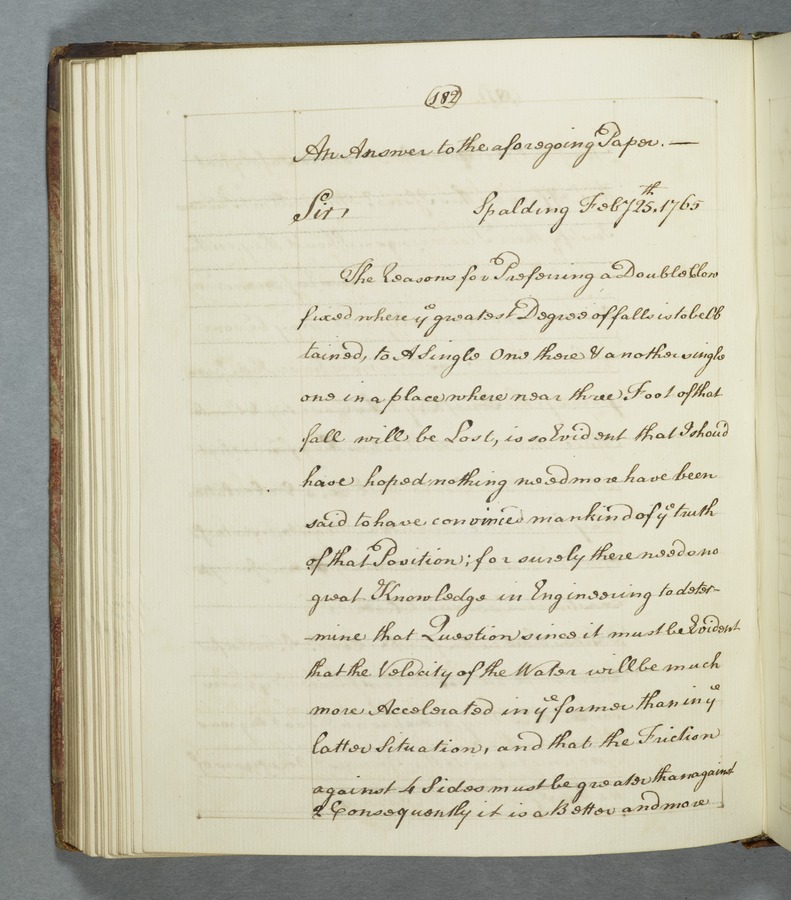 182
An Answer to the aforegoing Paper. —
Sir, Spalding Feb'y 25.th 1765
The Reasons for Preferring a Double Clow
fixed where ye greatest Degree of falls is to be Ob
tained, to A Single One there & another single
one in a place where near three Foot of that
fall will be Lost, is so Evident that I shou'd
have hoped nothing need more have been
said to have convinced mankind of ye truth
of that Position; for surely there needs no
great Knowledge in Engineering to deter-
-mine that Question since it must be Evident
that the Velocity of the Water will be much
more Accelerated in ye former than in ye
latter Situation, and that the Friction
against 4 Sides must be greater than against
2 Consequently it is a Better and more